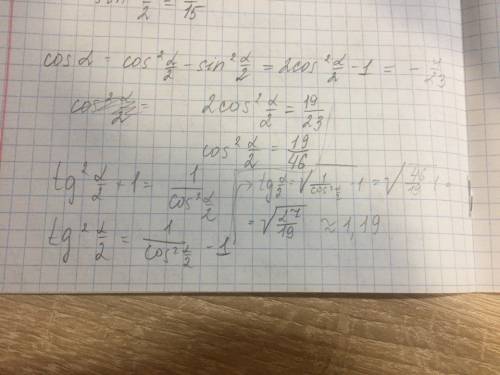 sin α/2 = /15
cos α = cos² α/2 - sin² α/2 = 2cos² α/2 - 1 = - 4/23
cos² α/2 = 2cos² α/2 = 19/23
cos² α/2 = 19/46
tg² α/2 + 1 = 1/cos² α/2
tg α/2 = √(1/cos² α/2 - 1) = √(46/19 - 1) =
tg² α/2 = 1/cos² α/2 - 1
= √(27/19) ≈ 1,19